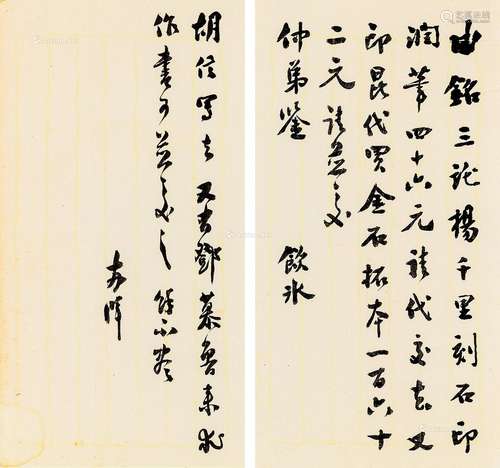 由銘三託楊千里刻石印
润筆四十六元請代交去又
印昆代買金石拓本一百六十
二元請並交
仲弟鑒 飲冰
胡信寫去 又 鄧慕魯來
作書可並交之 餘不